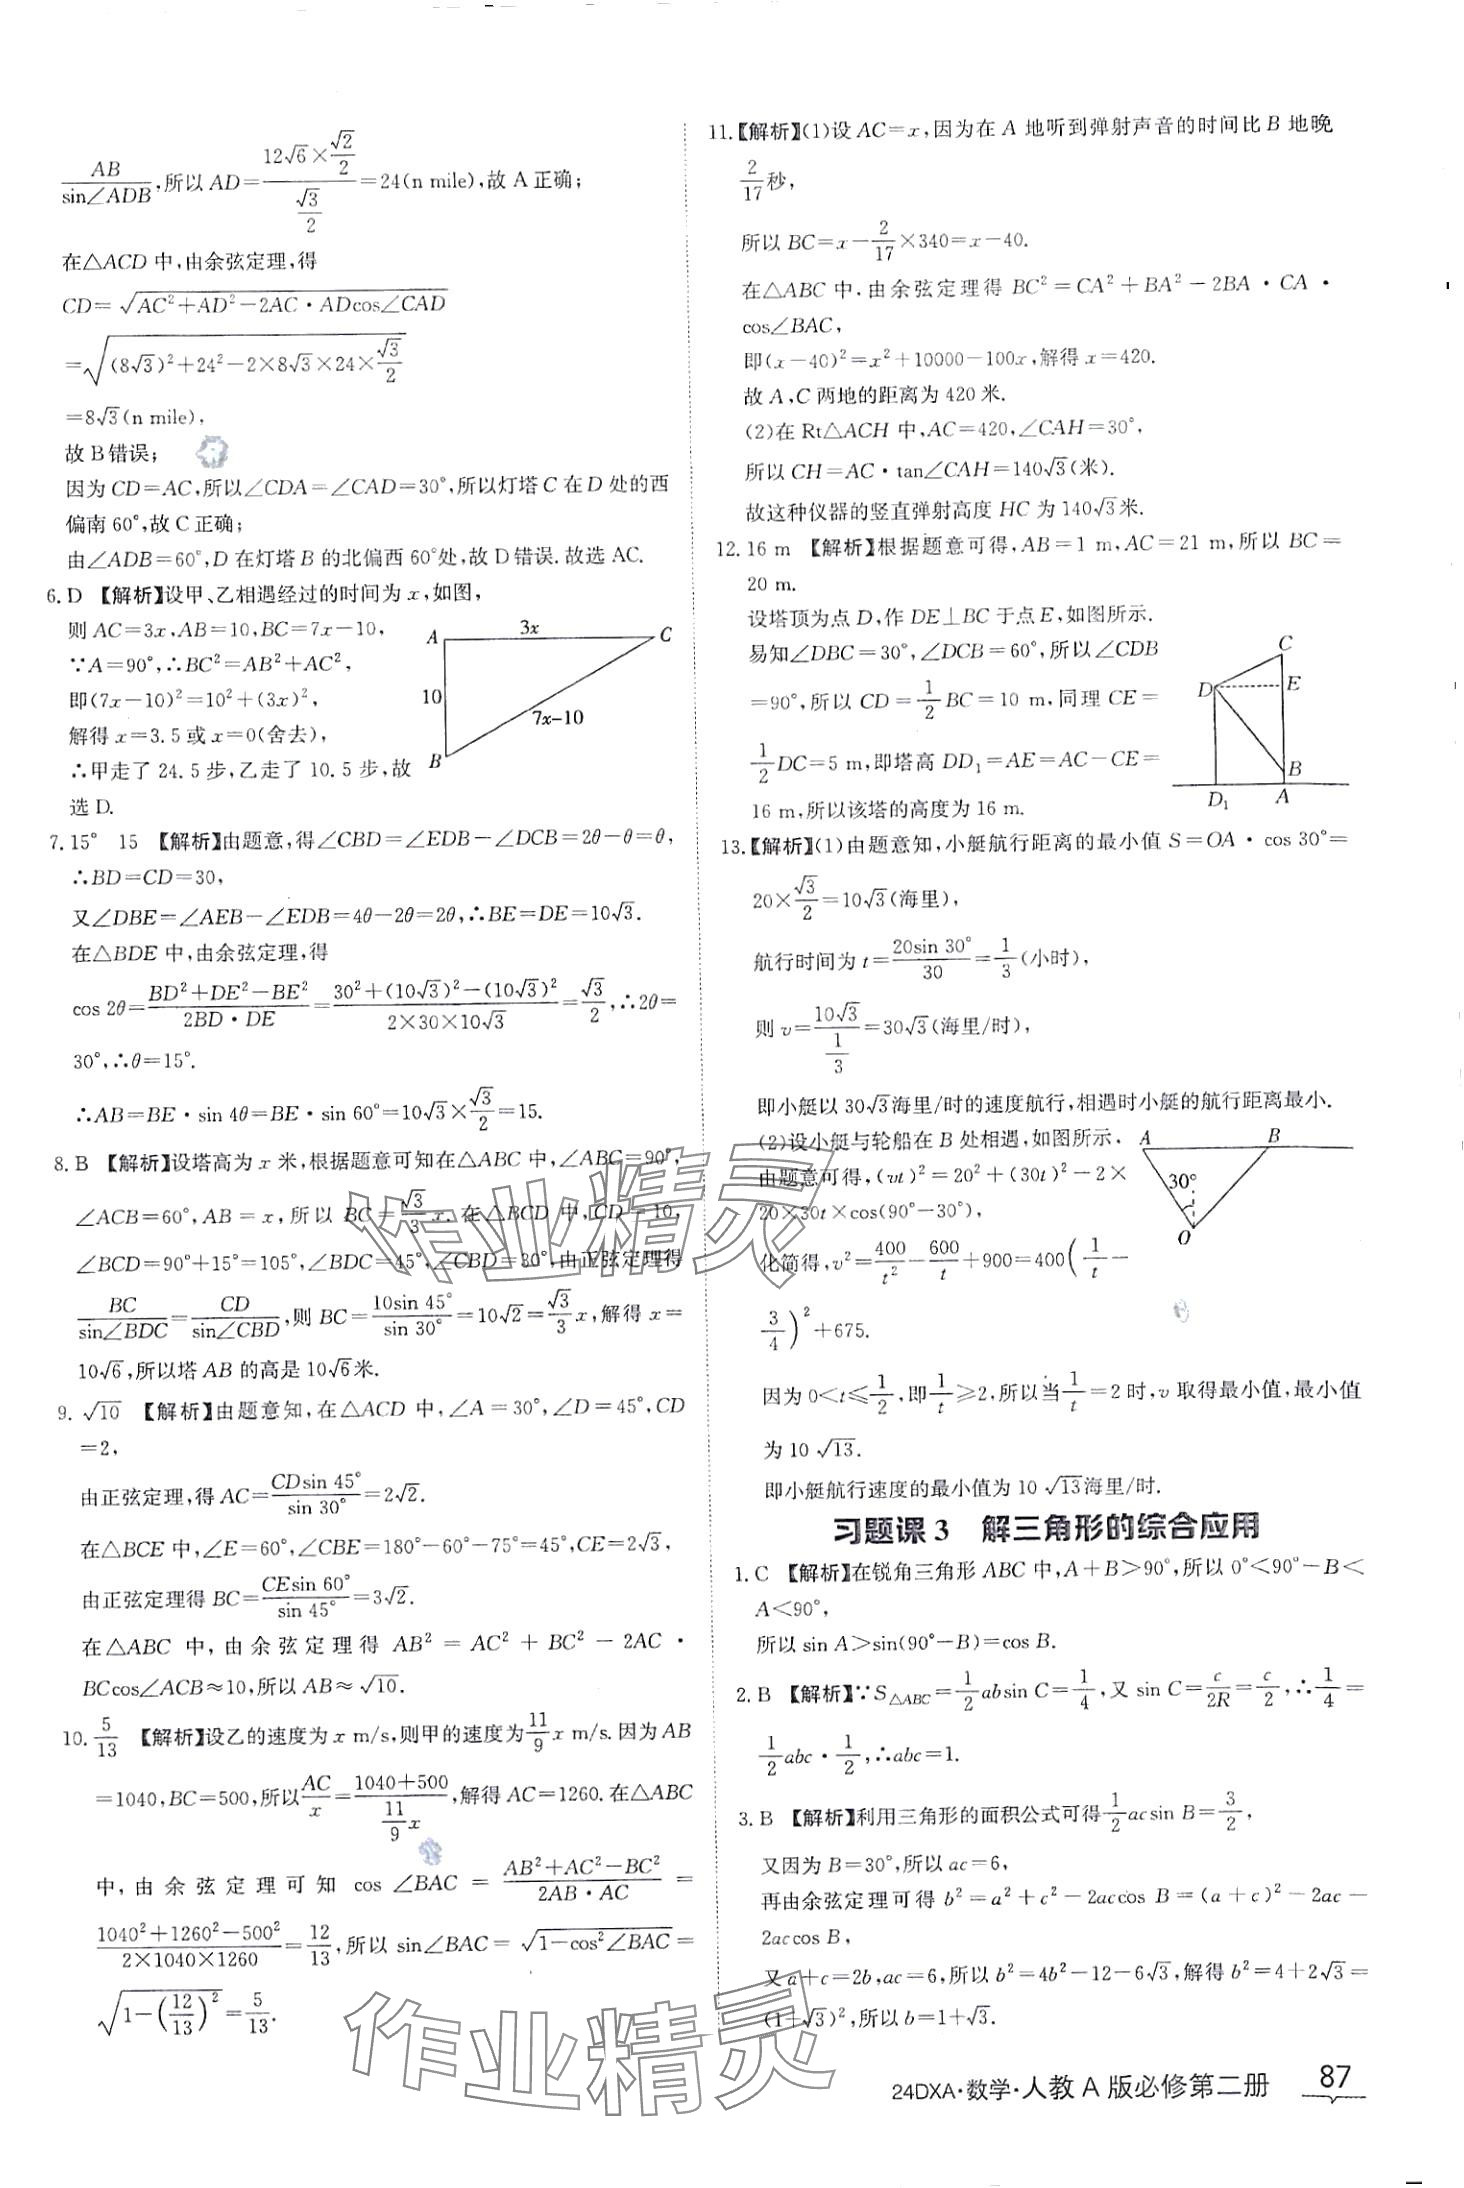 AB/sin∠ADB,所以 AD=(12√6×√2/2)/(√3/2)=24(n mile),故 A 正确;
在△ACD 中,由余弦定理,得
CD=√(AC²+AD²-2AC·ADcos∠CAD)
=√((8√3)²+24²-2×8√3×24×√3/2)
=8√3(n mile),
故 B 错误;
因为 CD=AC,所以∠CDA=∠CAD=30°,所以灯塔 C 在 D 处的西
偏南 60°,故 C 正确;
由∠ADB=60°,D 在灯塔 B 的北偏西 60°处,故 D 错误.故选 AC.
6. D 【解析】设甲、乙相遇经过的时间为 x,如图,
则 AC=3x,AB=10,BC=7x-10,
∵A=90°,∴BC²=AB²+AC²,
即(7x-10)²=10²+(3x)²,
解得 x=3.5 或 x=0(舍去),
∴甲走了 24.5 步,乙走了 10.5 步,故
选 D.
A 3x C
10
7x-10
B
7. 15° 15 【解析】由题意,得∠CBD=∠EDB-∠DCB=2θ-θ=θ,
∴BD=CD=30,
又∠DBE=∠AEB-∠EDB=4θ-2θ=2θ,∴BE=DE=10√3.
在△BDE 中,由余弦定理,得
cos 2θ=(BD²+DE²-BE²)/(2BD·DE)=(30²+(10√3)²-(10√3)²)/(2×30×10√3)=√3/2,∴2θ=
30°,∴θ=15°.
∴AB=BE·sin 4θ=BE·sin 60°=10√3×√3/2=15.
8. B 【解析】设塔高为 x 米,根据题意可知在△ABC 中,∠ABC=90°,
∠ACB=60°,AB=x,所以 BC=√3/3 x.在△BCD 中,CD=10,
∠BCD=90°+15°=105°,∠BDC=45°,∠CBD=30°,由正弦定理得
BC/sin∠BDC=CD/sin∠CBD,则 BC=10sin 45°/sin 30°=10√2=√3/3 x,解得 x=
10√6,所以塔 AB 的高是 10√6米.
9. √10 【解析】由题意知,在△ACD 中,∠A=30°,∠D=45°,CD
=2,
由正弦定理,得 AC=CDsin 45°/sin 30°=2√2.
在△BCE 中,∠E=60°,∠CBE=180°-60°-75°=45°,CE=2√3,
由正弦定理得 BC=CEsin 60°/sin 45°=3√2.
在△ABC 中,由余弦定理得 AB²=AC²+BC²-2AC·
BCcos∠ACB≈10,所以 AB≈√10.
10. 5/13 【解析】设乙的速度为 x m/s,则甲的速度为11/9 x m/s.因为 AB
=1040,BC=500,所以AC/x=(1040+500)/(11/9 x),解得 AC=1260.在△ABC
中,由余弦定理可知 cos∠BAC=(AB²+AC²-BC²)/(2AB·AC)=
(1040²+1260²-500²)/(2×1040×1260)=12/13,所以 sin∠BAC=√(1-cos²∠BAC)=
√(1-(12/13)²)=5/13.
11.【解析】(1)设 AC=x,因为在 A 地听到弹射声音的时间比 B 地晚
2/17秒,
所以 BC=x-2/17×340=x-40.
在△ABC 中,由余弦定理得 BC²=CA²+BA²-2BA·CA·
cos∠BAC,
即(x-40)²=x²+10000-100x,解得 x=420.
故 A,C 两地的距离为 420 米.
(2)在 Rt△ACH 中,AC=420,∠CAH=30°,
所以 CH=AC·tan∠CAH=140√3(米).
故这种仪器的竖直弹射高度 HC 为 140√3米.
12. 16 m 【解析】根据题意可得,AB=1 m,AC=21 m,所以 BC=
20 m.
设塔顶为点 D,作 DE⊥BC 于点 E,如图所示.
易知∠DBC=30°,∠DCB=60°,所以∠CDB
=90°,所以 CD=1/2 BC=10 m,同理 CE=
1/2 DC=5 m,即塔高 DD₁=AE=AC-CE=
16 m,所以该塔的高度为 16 m.
C
D E
B
D₁ A
13.【解析】(1)由题意知,小艇航行距离的最小值 S=OA·cos 30°=
20×√3/2=10√3(海里),
航行时间为 t=20sin 30°/30=1/3(小时),
则 v=10√3/(1/3)=30√3(海里/时),
即小艇以 30√3海里/时的速度航行,相遇时小艇的航行距离最小.
(2)设小艇与轮船在 B 处相遇,如图所示.
由题意可得,(vt)²=20²+(30t)²-2×
20×30t×cos(90°-30°),
化简得,v²=400/t²-600/t+900=400(1/t-
3/4)²+675.
A B
30°
O
因为 0<t≤1/2,即1/t≥2,所以当1/t=2 时,v 取得最小值,最小值
为 10√13.
即小艇航行速度的最小值为 10√13海里/时.
习题课 3 解三角形的综合应用
1. C 【解析】在锐角三角形 ABC 中,A+B>90°,所以 0°<90°-B<
A<90°,
所以 sin A>sin(90°-B)=cos B.
2. B 【解析】∵S△ABC=1/2 absin C=1/4,又 sin C=c/2R=c/2,∴1/4=
1/2 abc·1/2,∴abc=1.
3. B 【解析】利用三角形的面积公式可得1/2 acsin B=3/2,
又因为 B=30°,所以 ac=6,
再由余弦定理可得 b²=a²+c²-2accos B=(a+c)²-2ac-
2accos B,
又 a+c=2b,ac=6,所以 b²=4b²-12-6√3,解得 b²=4+2√3=
(1+√3)²,所以 b=1+√3.
作业精灵
作业精灵
24DXA·数学·人教 A 版必修第二册 87